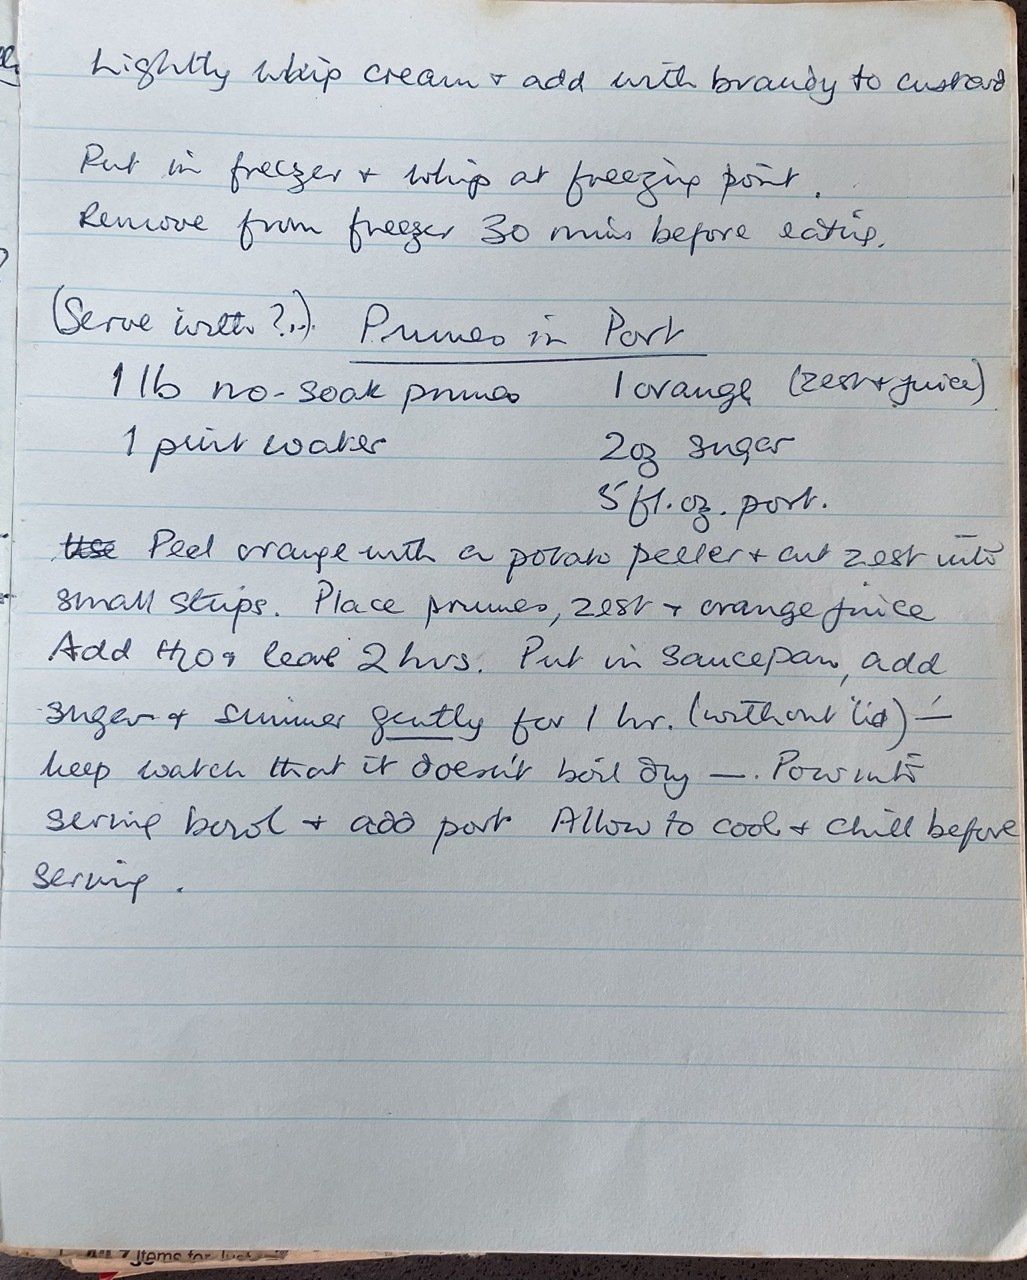 Lightly whip cream + add with brandy to custard
Put in freezer + whip at freezing point.
Remove from freezer 30 mins before eating.
(Serve with?..). Prunes in Port
1 lb no-soak prunes 1 orange (zest + juice)
1 pint water 2oz sugar
5 fl. oz. port.
Use Peel orange with a potato peeler + cut zest into
small strips. Place prunes, zest + orange juice
Add H2O + leave 2 hrs. Put in saucepan, add
sugar + simmer gently for 1 hr. (without lid) —
keep watch that it doesn't boil dry —. Pour into
serving bowl + add port Allow to cool + chill before
serving.
7 Items for Just